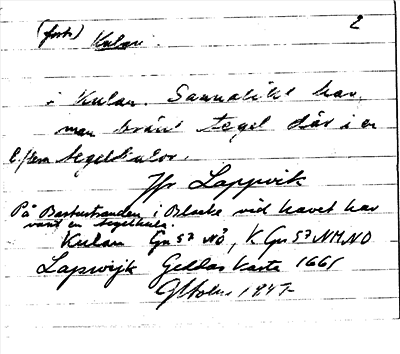 (forts) Kulan. 2
i Kulan. Sannolikt har
man bränt tegel där i en
l. fem tegelkulor.
Jfr Lappvik
På Basturstranden i Blacke vid havet har
varit en tegelkula.
Kulan Gu 57 NÖ, K Gu 57 NM, NO
Lapwijk Geddas karta 1661
1947